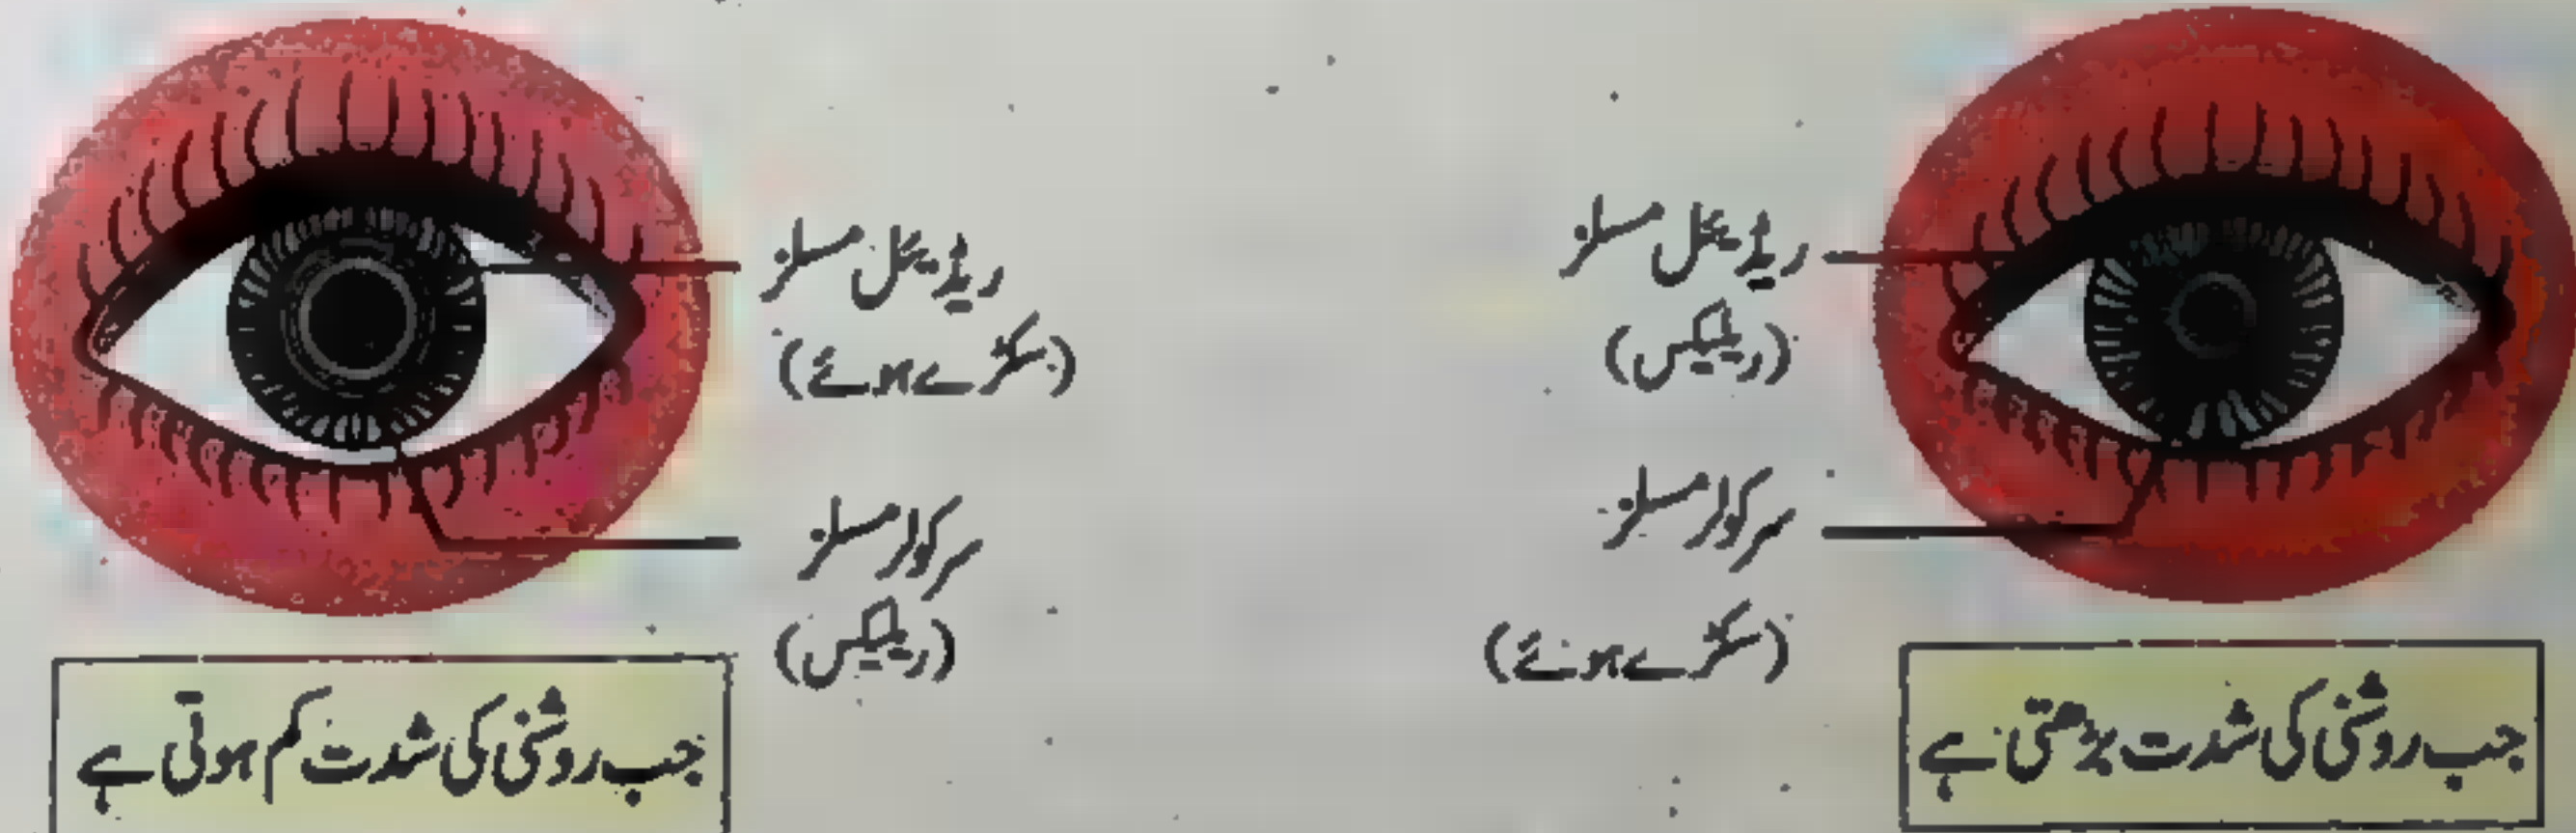 ریڈیئل مسلز
(ریلیکس)
سرکولر مسلز
(سکڑے ہوئے)
جب روشنی کی شدت بڑھتی ہے
ریڈیئل مسلز
(سکڑے ہوئے)
سرکولر مسلز
(ریلیکس)
جب روشنی کی شدت کم ہوتی ہے